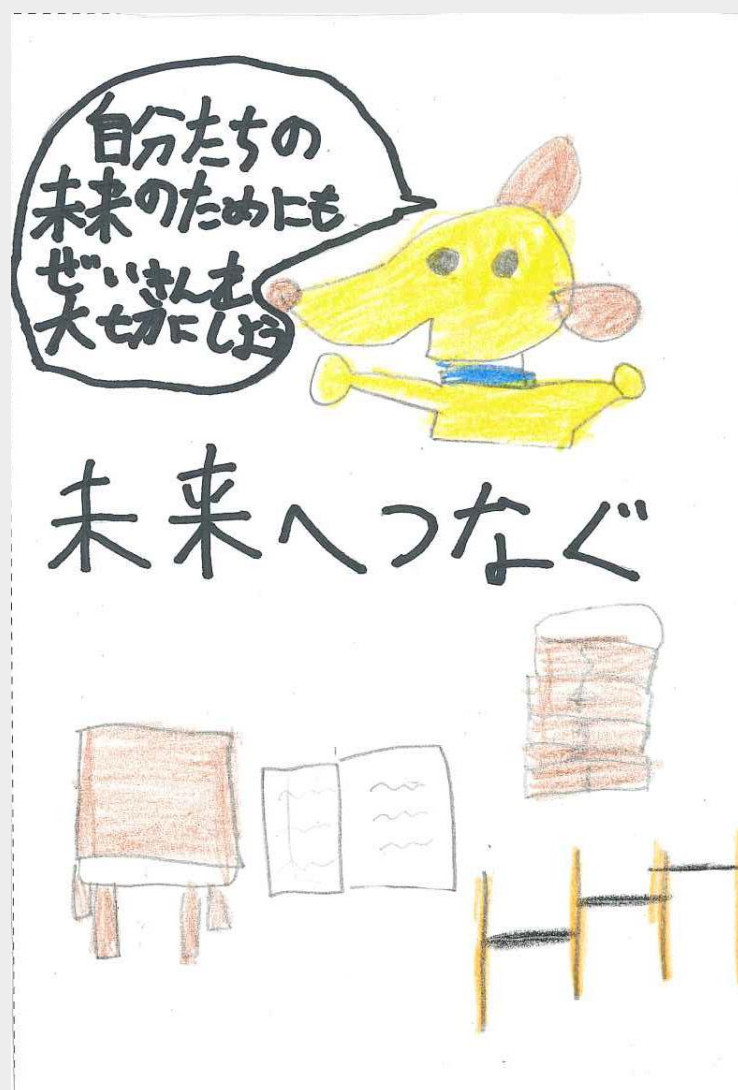 自分たちの
未来のためにも
ぜいきんを
大切にしよう
未来へつなぐ